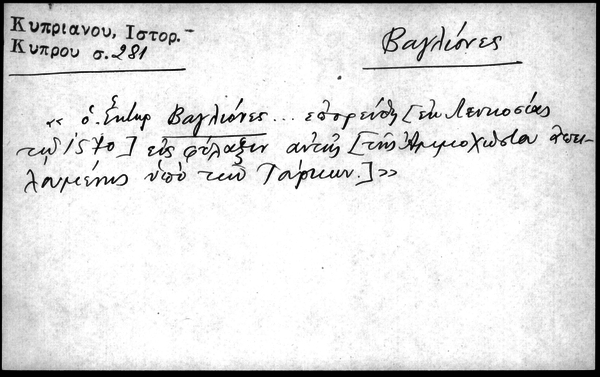 Κυπριανου, Ιστορ.-
Κυπρου σ.281
Βαγλιόνες
« ὁ Ἕκτωρ Βαγλιόνες ... ἐπορεύθη [ἐκ Λευκοσίας
τῷ 1570] εἰς φύλαξιν αὐτῆς [τῆς Ἀμμοχώστου ἀπει-
λουμένης ὑπὸ τῶν Τούρκων.]»